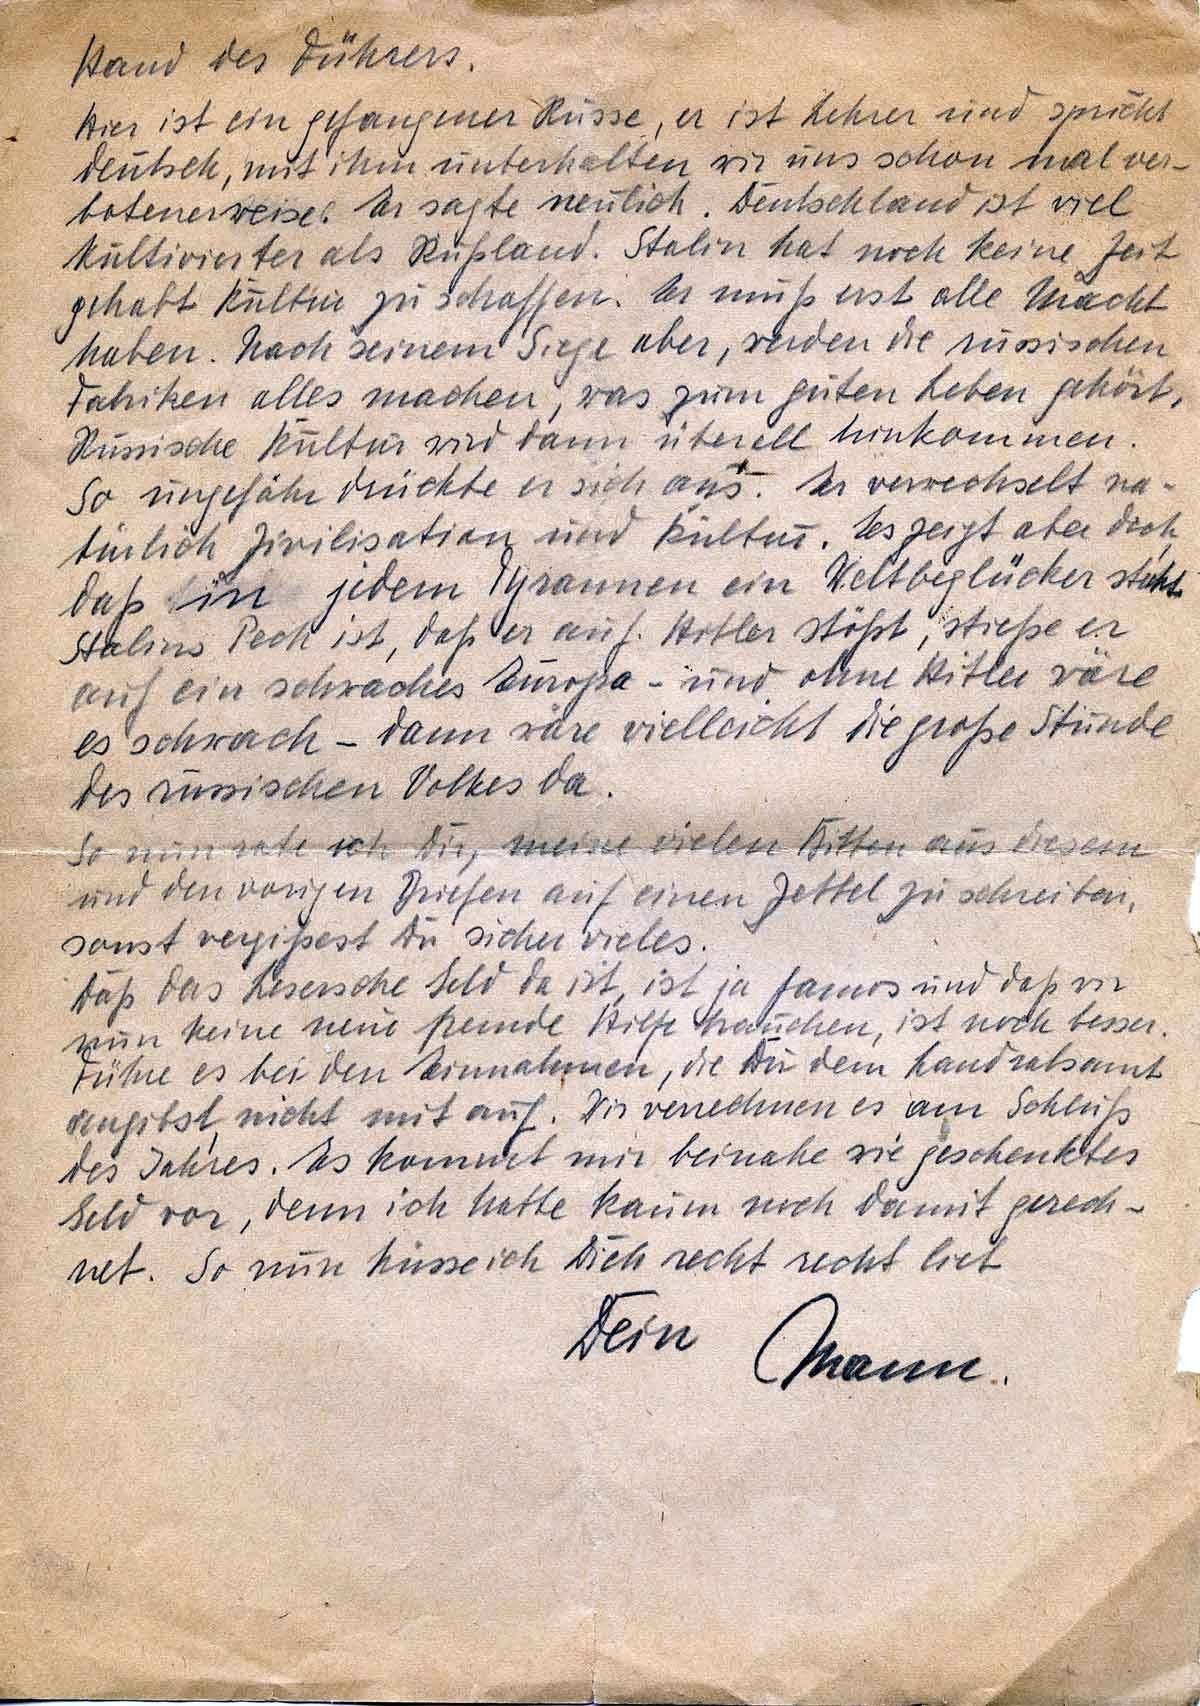 Hand des Führers.
Hier ist ein gefangener Russe, er ist Lehrer und spricht
deutsch, mit ihm unterhalten wir uns schon mal ver-
botenerweise. Er sagte neulich. Deutschland ist viel
kultivierter als Rußland. Stalin hat noch keine Zeit
gehabt Kultur zu schaffen. Er muß erst alle Macht
haben. Nach seinem Siege aber, werden die russischen
Fabriken alles machen, was zum guten Leben gehört,
Russische Kultur wird dann überall hinkommen.
So ungefähr drückte er sich aus. Er verwechselt na-
türlich Zivilisation und Kultur. Es zeigt aber doch
daß in jedem Tyrannen ein Weltbeglücker steckt.
Stalins Pech ist, daß er auf Hitler stößt, stieße er
auf ein schwaches Europa - und ohne Hitler wäre
es schwach - dann wäre vielleicht die große Stunde
des russischen Volkes da.
So nun rate ich Dir, meine vielen Bitten aus diesem
und den vorigen Briefen auf einen Zettel zu schreiben,
sonst vergißest Du sicher vieles.
Daß das Lesersche Geld da ist, ist ja famos und daß wir
nun keine neue fremde Hilfe brauchen, ist noch besser.
Führe es bei den Einnahmen, die Du dem Landratsamt
angibst, nicht mit auf. Wir verrechnen es am Schluß
des Jahres. Es kommt mir beinahe wie geschenktes
Geld vor, denn ich hatte kaum noch damit gerech-
net. So nun küsse ich Dich recht recht lieb
Dein Mann.